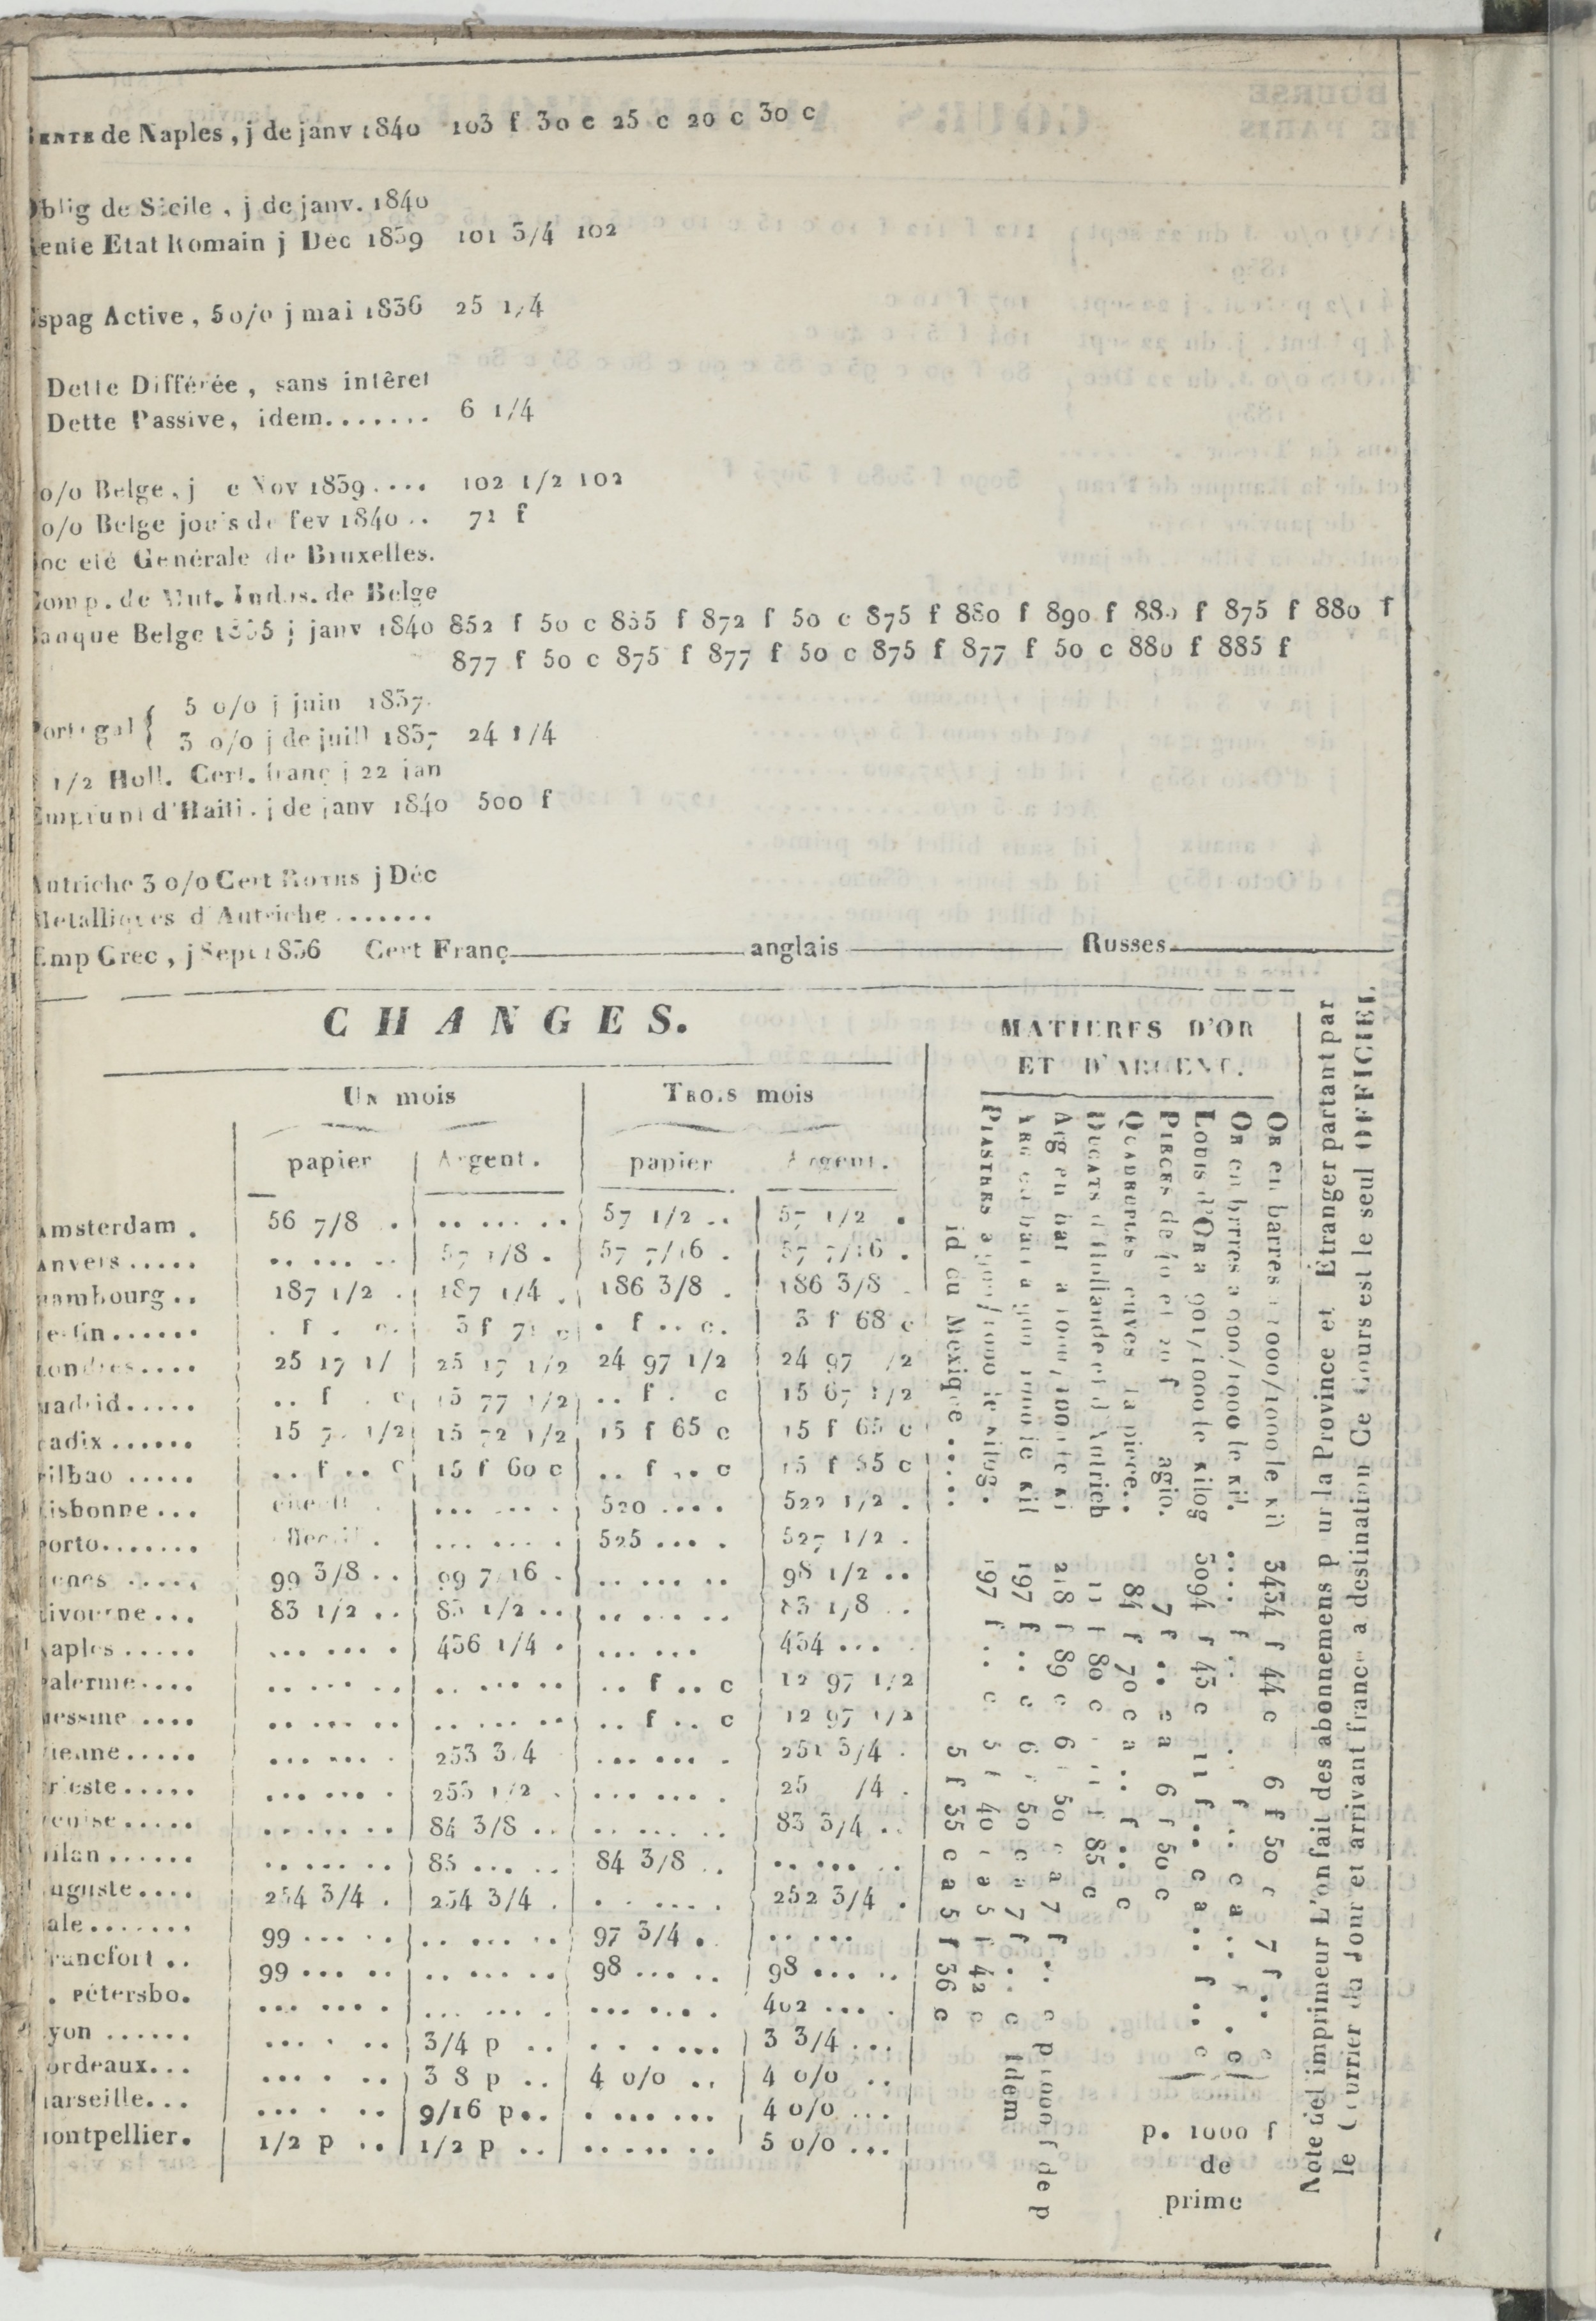 de Naples, j de janv 1840 103 f 30 c 25 c 20 c 30 c
blig de Sicile, j de janv. 1840
ente Etat Romain j Déc 1839 101 3/4 102
spag Active, 5 o/o j mai 1836 25 1/4
Dette Différée, sans intêret
Dette Passive, idem....... 6 1/4
o/o Belge, j Nov 1839.... 102 1/2 102
o/o Belge jouis de fev 1840.. 71 f
oc eté Genérale de Bruxelles.
omp. de Mut. Indus. de Belge
anque Belge 1835 j janv 1840 852 f 50 c 855 f 872 f 50 c 875 f 880 f 890 f 880 f 875 f 880 f
877 f 50 c 875 f 877 f 50 c 875 f 877 f 50 c 880 f 885 f
Portugal { 5 o/o j juin 1837
3 o/o j de juill 1837 24 1/4
1/2 Holl. Cert. franç j 22 jan
Emprunt d'Haiti. j de janv 1840 500 f
utriche 3 o/o Cert j Déc
Metalliques d'Autriche.......
Emp Grec, j Sept 1836 Cert Franç anglais Russes
CHANGES.
Un mois Trois mois
papier Argent. papier Argent.
msterdam . 56 7/8 . .. ... .. 57 1/2 .. 57 1/2 .
nvers..... .. ... .. 57 1/8 . 57 7/16 . 57 7/16 .
ambourg.. 187 1/2 . 187 1/4 . 186 3/8 . 186 3/8 .
erlin...... . f . c. 3 f 71 c . f .. c. 3 f 68 c
ondres.... 25 17 1/ 25 17 1/2 24 97 1/2 24 97 /2
adrid..... .. f . c 15 77 1/2 .. f . c 15 67 1/2
adix...... 15 7 1/2 15 72 1/2 15 f 65 c 15 f 65 c
ilbao ..... .. f .. c 15 f 60 c .. f .. c 15 f 55 c
isbonne... ... .... . 520 .... 522 1/2 .
orto....... ... .... . 525 ... . 527 1/2 .
enes ..... 99 3/8 .. 99 7/16 . .. ... .. 98 1/2 ..
ivourne... 83 1/2 .. 83 1/2 .. .. ... .. 83 1/8 ..
aples ..... ... ... . 436 1/4 . ... ... 434 ...
alerme.... .. ... .. .. ... .. .. f .. c 12 97 1/2
essine .... .. ... .. .. ... .. .. f .. c 12 97 1/2
ienne..... ... ... . 253 3/4 ... ... . 251 3/4 .
rieste..... ... ... . 253 1/2 . ... ... . 25 /4 .
enise..... .. ... .. 84 3/8 .. .. ... .. 83 3/4 ..
ilan ...... .. ... .. 85 ... .. 84 3/8 .. .. ... ..
uguste.... 254 3/4 . 254 3/4 . . ... ... 252 3/4 .
ale....... 99 ... .. .. ... .. 97 3/4 . .. ...
rancfort .. 99 ... .. .. ... .. 98 ... .. 98 ... ..
. Pétersbo. ... ... . ... ... . ... ... . 402 ... .
yon ...... ... . .. 3/4 p .. . . . ... 3 3/4 ...
ordeaux... ... . .. 3 8 p .. 4 o/o .. 4 o/o ..
arseille... ... . .. 9/16 p.. . ... ... 4 o/o ...
ontpellier. 1/2 p .. 1/2 p .. .. ... .. 5 o/o ...
MATIERES D'OR
ET D'ARGENT.
Or en barres a 1000/1000 le kil 3434 f 44 c 6 f 50 c 7 f .. c
Or en brres a 900/1000 le kil. .... f .. .. f .. c a .. f . c
Louis d'Or a 901/1000 le kilog 3094 f 43 c 11 f .. c a .. f .. c
Pieces de 40 et 20 f agio. 7 f .. c a 6 f 50 c
Quadruples la piece.. 84 f 70 c a .. f .. c
Ducats d'Hollande et d'Autrich 11 f 80 c 11 f 85 c
Arg en bar a 1000/1000 le ki 218 f 89 c 6 f 50 c a 7 f .. c p 1000 f de p
197 f .. c 6 f 50 c a 7 f .. c Idem
Piastres a 900/1000 le kilog. 197 f .. c 5 f 40 c a 5 f 42 c
id du Mexique..... 5 f 35 c a 5 f 36 c
p. 1000 f
de
prime
Note del imprimeur L'on fait des abonnemens p ur la Province et Étranger partant par
le Courrier du Jour et arrivant franc a destination Ce Cours est le seul OFFICIEL